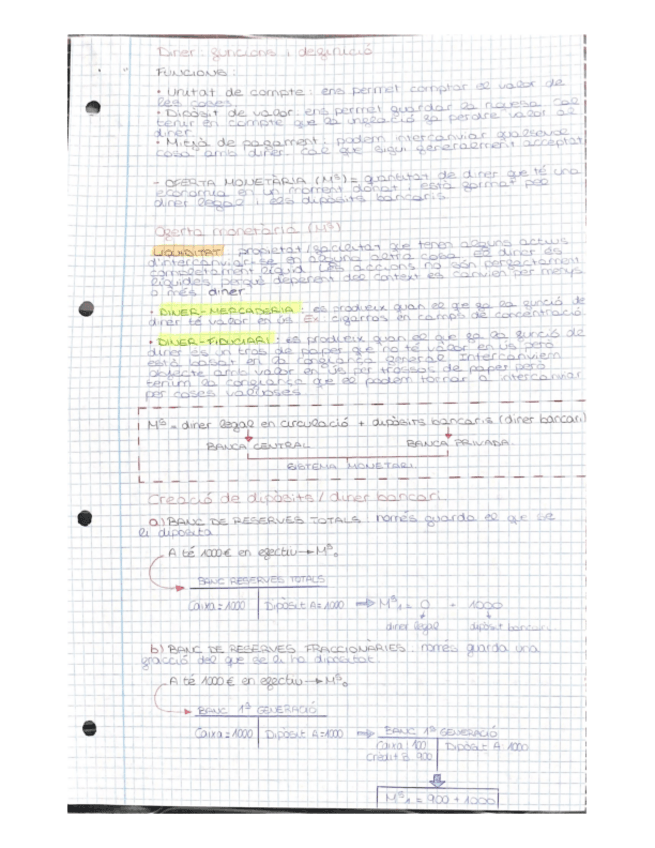 Diner: funcions i definició
FUNCIONS:
• Unitat de compte: ens permet comptar el valor de
les coses
• Dipòsit de valor: ens permet guardar la riquesa. Cal
tenir en compte que la inflació fa perdre valor al
diner
• Mitjà de pagament: podem intercanviar qualsevol
cosa amb diner. Cal que sigui generalment acceptat
- OFERTA MONETÀRIA (Mˢ) = quantitat de diner que té una
economia en un moment donat i està format pel
diner legal i els dipòsits bancaris
Oferta monetària (Mˢ)
LIQUIDITAT: propietat/facultat que tenen alguns actius
d'intercanviar-se en alguna altra cosa. El diner és
completament líquid. Les accions no són perfectament
líquides perquè depenent del context es canvien per menys
o més diner
• DINER-MERCADERIA: es produeix quan el que fa la funció de
diner té valor en ús. Ex: cigarros en camps de concentració.
• DINER-FIDUCIARI: es produeix quan el que fa la funció de
diner és un tros de paper que no té valor en ús però
està basat en la confiança general. Intercanviem
objecte amb valor en ús per trossos de paper però
tenim la confiança que el podem tornar a intercanviar
per coses valuoses
Mˢ = diner legal en circulació + dipòsits bancaris (diner bancari)
BANCA CENTRAL BANCA PRIVADA
SISTEMA MONETARI
Creació de dipòsits / diner bancari
a) BANC DE RESERVES TOTALS: només guarda el que se
li diposita
A té 1000€ en efectiu → Mˢ₀
BANC RESERVES TOTALS
Caixa = 1000 | Dipòsit A = 1000 ⇒ Mˢ₁ = 0 + 1000
diner legal dipòsit bancari
b) BANC DE RESERVES FRACCIONÀRIES: només guarda una
fracció del que se li ha dipositat
A té 1000€ en efectiu → Mˢ₀
BANC 1ª GENERACIÓ
Caixa = 1000 | Dipòsit A = 1000 ⇒ BANC 1ª GENERACIÓ
Caixa: 100 | Dipòsit A 1000
Crèdit B: 900
Mˢ₁ = 900 + 1000